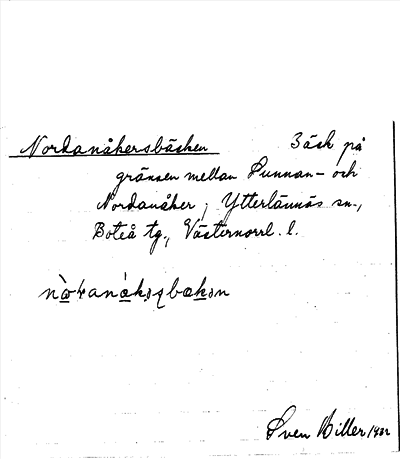 Nordanåkersbäcken Bäck på
gränsen mellan Sunnan- och
Nordanåker, Ytterlännäs sn.,
Boteå tg., Västernorrl. l.
Sven Biller 1932